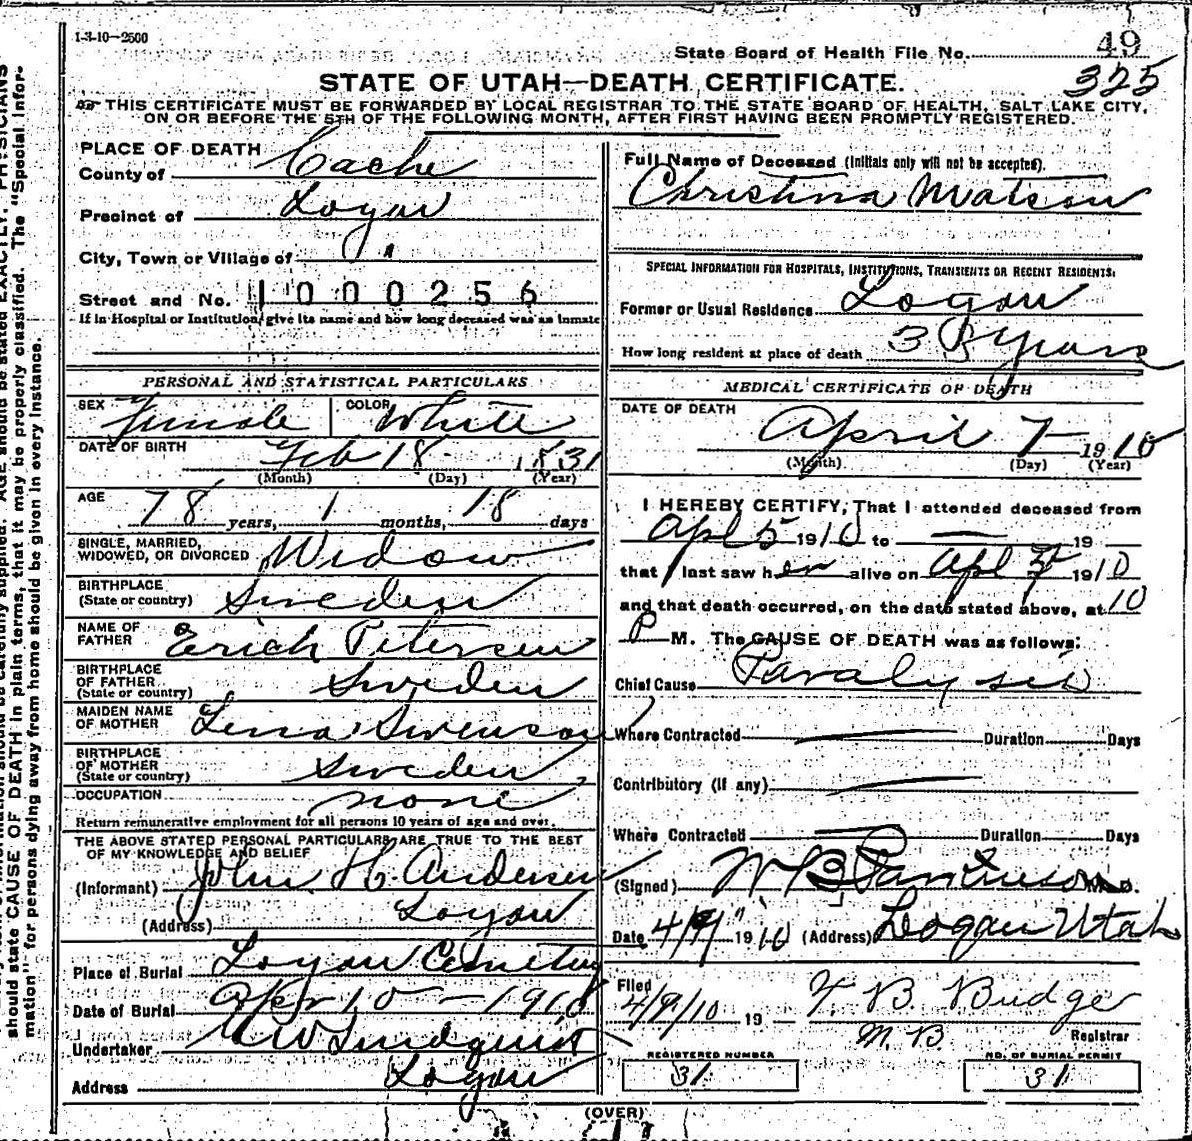 1-3-10—2500
State Board of Health File No. 49
325
STATE OF UTAH—DEATH CERTIFICATE.
THIS CERTIFICATE MUST BE FORWARDED BY LOCAL REGISTRAR TO THE STATE BOARD OF HEALTH, SALT LAKE CITY,
ON OR BEFORE THE 5TH OF THE FOLLOWING MONTH, AFTER FIRST HAVING BEEN PROMPTLY REGISTERED.
PLACE OF DEATH
County of Cache
Precinct of Logan
City, Town or Village of "
Street and No. 1000256
If in Hospital or Institution, give its name and how long deceased was as inmate
PERSONAL AND STATISTICAL PARTICULARS
SEX Female COLOR White
DATE OF BIRTH Feb 18 1831
(Month) (Day) (Year)
AGE
78 years, 1 months, 18 days
SINGLE, MARRIED,
WIDOWED, OR DIVORCED Widow
BIRTHPLACE
(State or country) Sweden
NAME OF
FATHER Erick Petersen
BIRTHPLACE
OF FATHER
(State or country) Sweden
MAIDEN NAME
OF MOTHER Lena Swenson
BIRTHPLACE
OF MOTHER
(State or country) Sweden
OCCUPATION none
Return remunerative employment for all persons 10 years of age and over.
THE ABOVE STATED PERSONAL PARTICULARS ARE TRUE TO THE BEST
OF MY KNOWLEDGE AND BELIEF
(Informant) John H. Andersen
(Address) Logan
Place of Burial Logan Cemetery
Date of Burial Apr 10 — 1910
Undertaker Lindquist
Address Logan
Full Name of Deceased (Initials only will not be accepted).
Christina Matson
SPECIAL INFORMATION FOR HOSPITALS, INSTITUTIONS, TRANSIENTS OR RECENT RESIDENTS.
Former or Usual Residence Logan
How long resident at place of death 38 years
MEDICAL CERTIFICATE OF DEATH
DATE OF DEATH
April 7 1910
(Month) (Day) (Year)
I HEREBY CERTIFY, That I attended deceased from
Apl 5 1910 to — 19
that I last saw her alive on Apl 1910
and that death occurred, on the date stated above, at 10
P M. The CAUSE OF DEATH was as follows:
Chief Cause Paralysis
Where Contracted — Duration Days
Contributory (if any) —
Where Contracted — Duration Days
(Signed) W B Parkinson M. D.
Date 4/9" 1910 (Address) Logan Utah
Filed
4/9/10 19 — T. B. Budge
M. D. Registrar
REGISTERED NUMBER
31
NO. OF BURIAL PERMIT
31
(OVER)
should state CAUSE OF DEATH in plain terms, that it may be properly classified. The "Special Infor-
mation" for persons dying away from home should be given in every instance.